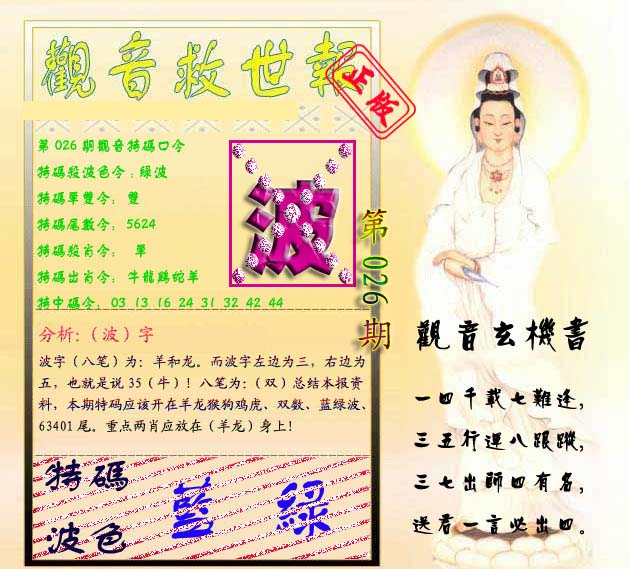 觀音救世報
正版
第026期觀音特碼口令
特碼殺波色令:綠波
特碼單雙令: 雙
特碼尾數令: 5624
特碼殺肖令: 單
特碼出肖令: 牛龍鷄蛇羊
特中碼令: 03 13 16 24 31 32 42 44
波
第026期
分析:（波）字
波字（八笔）为：羊和龙。而波字左边为三，右边为
五，也就是说35（牛）！八笔为：（双）总结本报资
料，本期特码应该开在羊龙猴狗鸡虎、双数、蓝绿波、
63401尾。重点两肖应放在（羊龙）身上！
特碼
波色
藍 綠
觀音玄機書
一四千載七難逢，
三五行運八跟蹤，
三七出師四有名，
送君一言必出四。